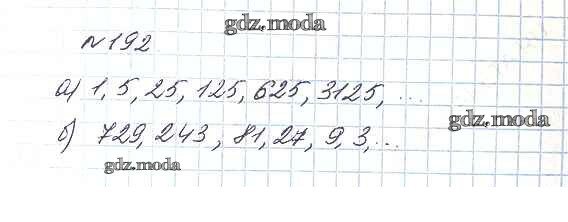 gdz.moda
№192
а) 1, 5, 25, 125, 625, 3125, ...
gdz.moda
б) 729, 243, 81, 27, 9, 3, ...
gdz.moda